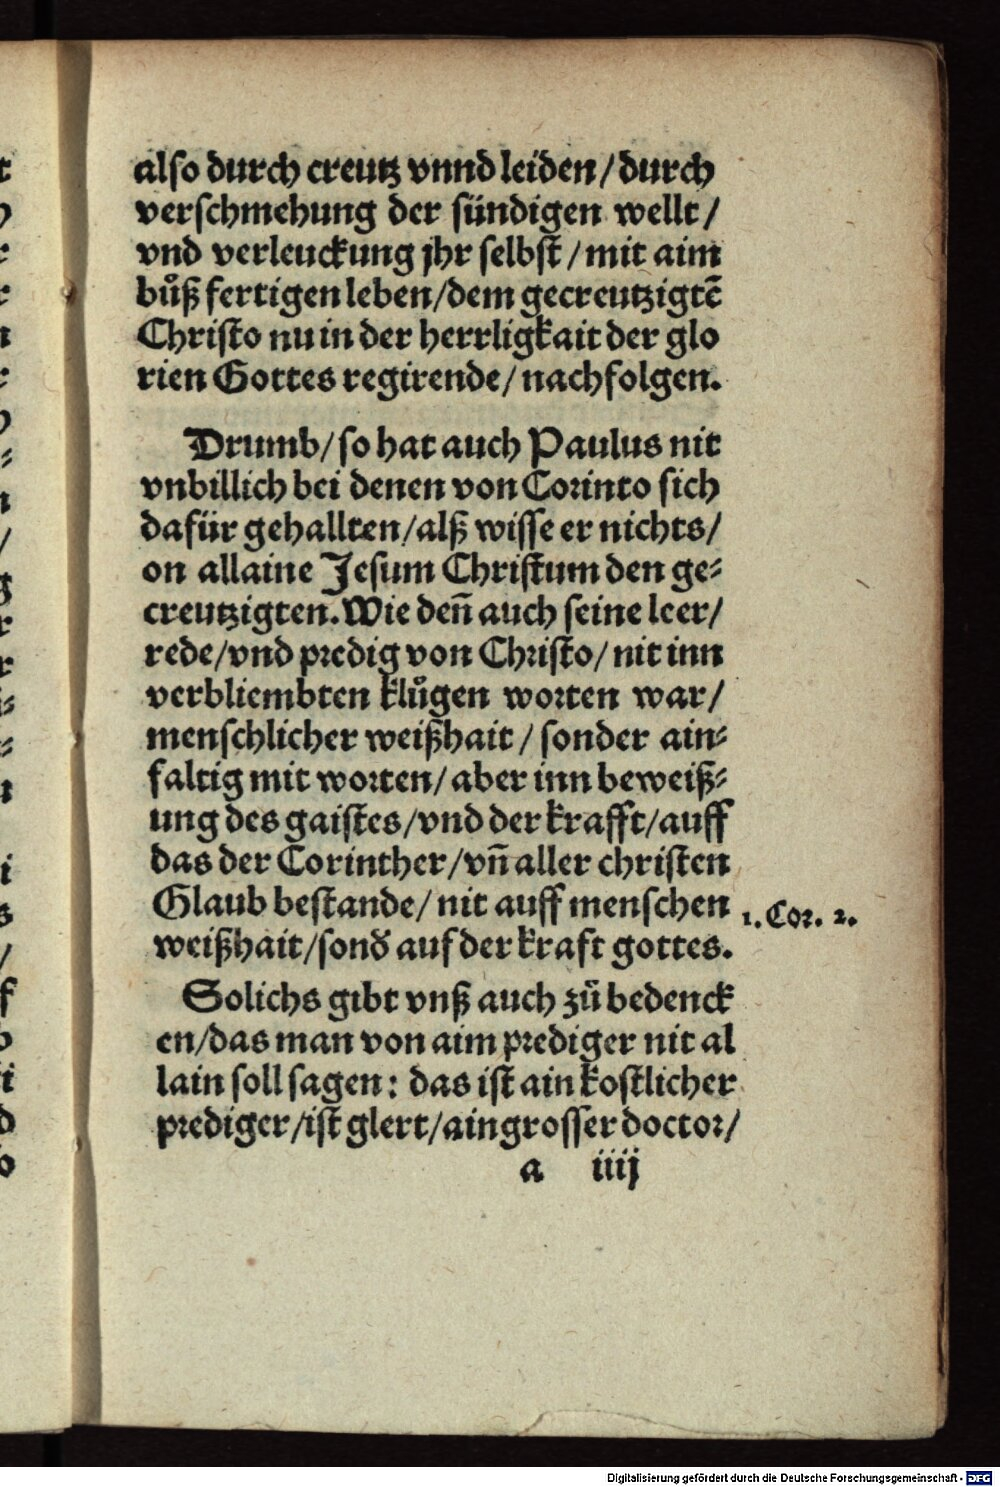 also durch creutz vnnd leiden/durch
verschmehung der sündigen wellt/
vnd verleuckung jhr selbst̃/mit aim
bůß fertigen leben/dem gecreutzigtē
Christo nu in der herrligkait der glo
rien Gottes regirende/nachfolgen.
Drumb/so hat auch Paulus nit
vnbillich bei denen von Corinto sich
dafür gehallten/alß wisse er nichts/
on allaine Jesum Christum den ge⸗
creutzigten. Wie deñ auch seine leer/
rede/vnd predig von Christo/nit inn
verbliembten klůgen worten war/
menschlicher weißhait/sonder ain⸗
faltig mit worten/aber inn beweiß⸗
ung des gaistes/vnd der krafft/auff
das der Corinther/vñ aller christen
Glaub bestande/nit auff menschen
1. Cor. 2.
weißhait/sond̕ auf der kraft gottes.
Solichs gibt vnß auch zů bedenck
en/das man von aim prediger nit al
lain soll sagen: das ist ain kostlicher
prediger/ist glert/ain grosser doctor/
a iiij
t
r
r
n
r
⸗
n
/
g
r
r
⸗
⸗
i
s
/
f
i
d
o
Digitalisierung gefördert durch die Deutsche Forschungsgemeinschaft - DFG